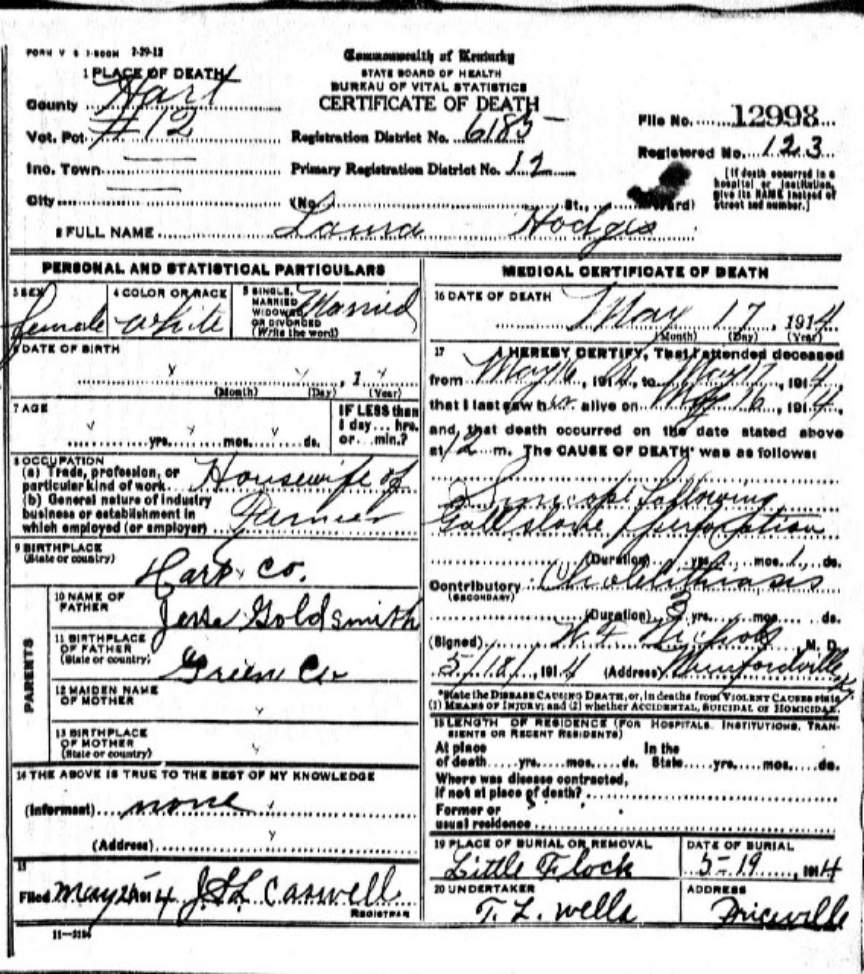 FORM V S 1-500M 7-29-13
Commonwealth of Kentucky
STATE BOARD OF HEALTH
BUREAU OF VITAL STATISTICS
CERTIFICATE OF DEATH
1 PLACE OF DEATH
County Hart
Vot. Pct. #12
Ino. Town
City
Registration District No. 6185
Primary Registration District No. 12
(No. St., Ward)
File No. 12998
Registered No. 123
[If death occurred in a
hospital or institution,
give its NAME instead of
street and number.]
2 FULL NAME Laura Hodges
PERSONAL AND STATISTICAL PARTICULARS
3 SEX
female
4 COLOR OR RACE
White
5 SINGLE,
MARRIED
WIDOWED
OR DIVORCED
(Write the word)
Married
6 DATE OF BIRTH
, 1
(Month) (Day) (Year)
7 AGE
yrs. mos. ds.
IF LESS than
1 day... hrs.
or... min.?
8 OCCUPATION
(a) Trade, profession, or
particular kind of work Housewife of
(b) General nature of industry
business or establishment in
which employed (or employer)
9 BIRTHPLACE
(State or country)
Hart Co.
PARENTS
10 NAME OF
FATHER
Jesse Goldsmith
11 BIRTHPLACE
OF FATHER
(State or country)
Green Co
12 MAIDEN NAME
OF MOTHER
13 BIRTHPLACE
OF MOTHER
(State or country)
14 THE ABOVE IS TRUE TO THE BEST OF MY KNOWLEDGE
(Informant) none
(Address)
15
Filed May 25 1914 Caswell
REGISTRAR
11-3184
MEDICAL CERTIFICATE OF DEATH
16 DATE OF DEATH
May 17, 1914
(Month) (Day) (Year)
17 I HEREBY CERTIFY, That I attended deceased
from May 16, 1914, to May 17, 1914,
that I last saw her alive on May 16, 1914,
and that death occurred on the date stated above
at 12 m. The CAUSE OF DEATH* was as follows:
following
Gall stone perforation
(Duration) yrs. mos. 1 ds.
Contributory Cholelithiasis
(SECONDARY)
(Duration) 3 yrs. mos. ds.
(Signed) Nichols M. D.
5/18/, 1914 (Address) Munfordville Ky
*State the DISEASE CAUSING DEATH, or, in deaths from VIOLENT CAUSES state
(1) MEANS OF INJURY; and (2) whether ACCIDENTAL, SUICIDAL or HOMICIDAL.
18 LENGTH OF RESIDENCE (FOR HOSPITALS, INSTITUTIONS, TRAN-
SIENTS OR RECENT RESIDENTS)
At place In the
of death yrs. mos. ds. State yrs. mos. ds.
Where was disease contracted,
if not at place of death?
Former or
usual residence
19 PLACE OF BURIAL OR REMOVAL
Little Flock
DATE OF BURIAL
5-19, 1914
20 UNDERTAKER
T. L. Wells
ADDRESS
Priceville